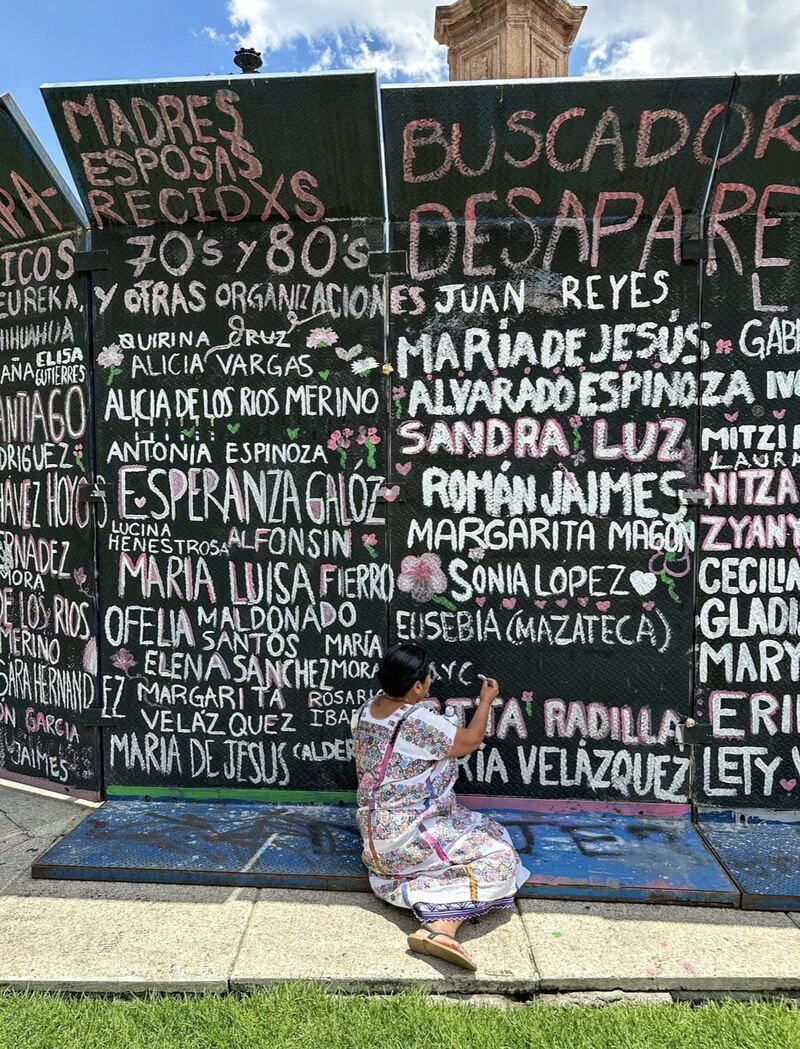 PA-
ICOS
EUREKA,
CHIHUAHUA
AÑA ELISA
GUTIERRES
ANTIAGO
DRIGUEZ
HÁVEZ HOYOS
RNADEZ
MORA
DE LOS RIOS
MERINO
SARA HERNANDEZ
ON GARCIA
JAIMES
MADRES
ESPOSAS
RECIDXS
70's y 80's
Y OTRAS ORGANIZACIONES
QUIRINA CRUZ
ALICIA VARGAS
ALICIA DE LOS RIOS MERINO
ANTONIA ESPINOZA
ESPERANZA GALÓZ
LUCINA
HENESTROSA ALFONSIN
MARIA LUISA FIERRO
OFELIA MALDONADO
SANTOS MARÍA
ELENA SANCHEZ MORA
MARGARITA ROSARIO
VELÁZQUEZ IBA
MARIA DE JESUS CALDER
BUSCADOR
DESAPARE
JUAN REYES
MARÍA DE JESÚS
ALVARADO ESPINOZA
SANDRA LUZ
ROMÁN JAIMES
MARGARITA MAGÓN
SONIA LÓPEZ
EUSEBIA (MAZATECA)
AYC
TITA RADILLA
RÍA VELÁZQUEZ
L
GABR
IV
MITZI
LAURA
NITZA
ZYANY
CECILIA
GLADI
MARY
ERI
LETY V